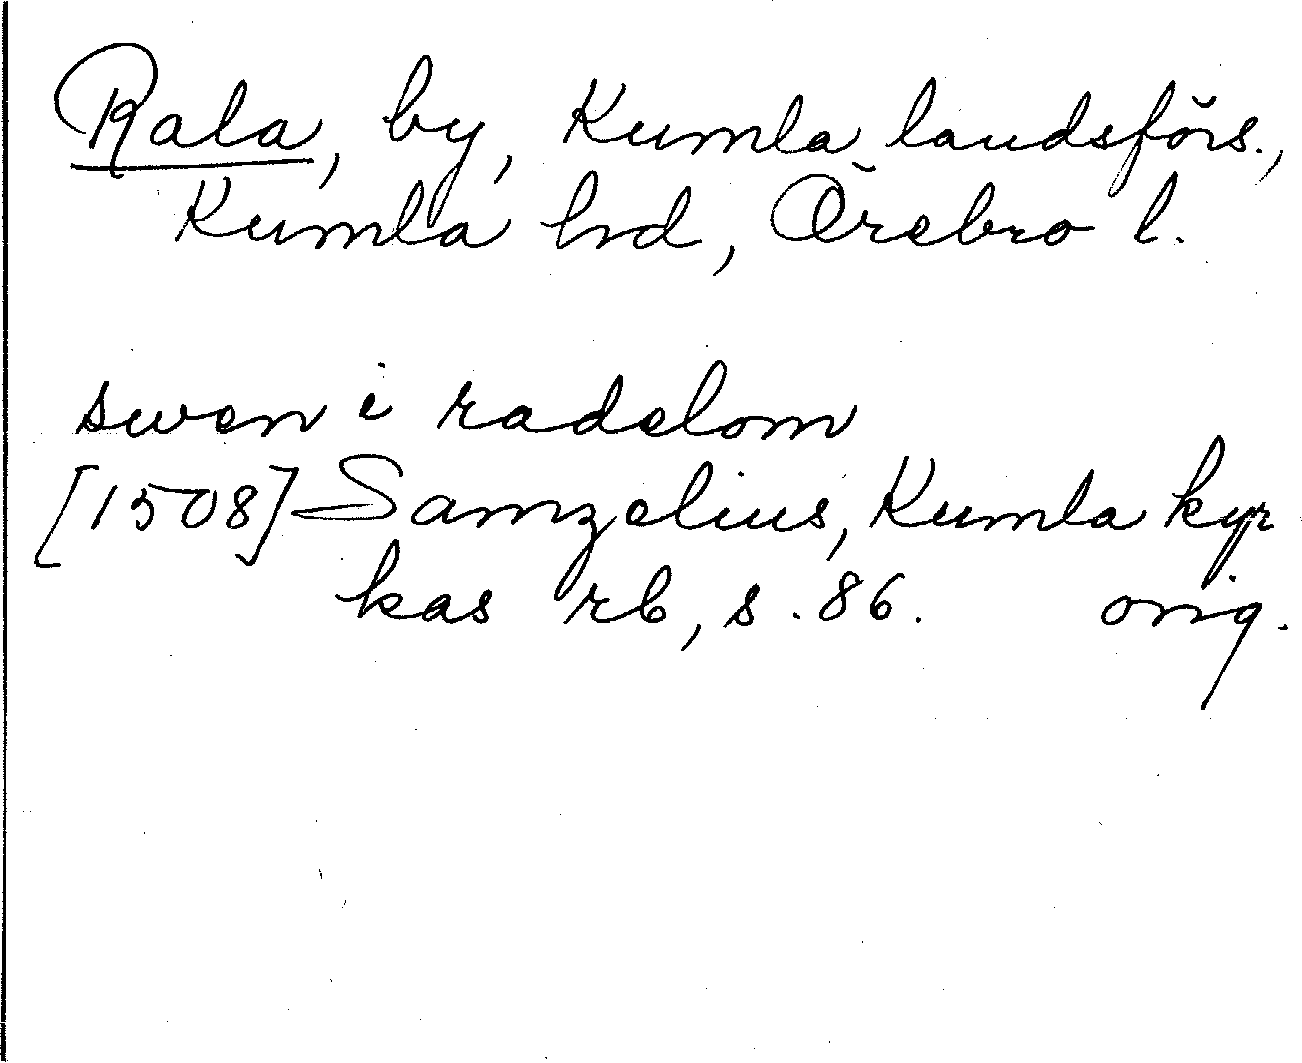 Rala, by, Kumla landsförs.,
Kumla hd, Örebro l.
swen i radelom
[1508] Samzelius, Kumla kyr
kas rb, s. 86. orig.